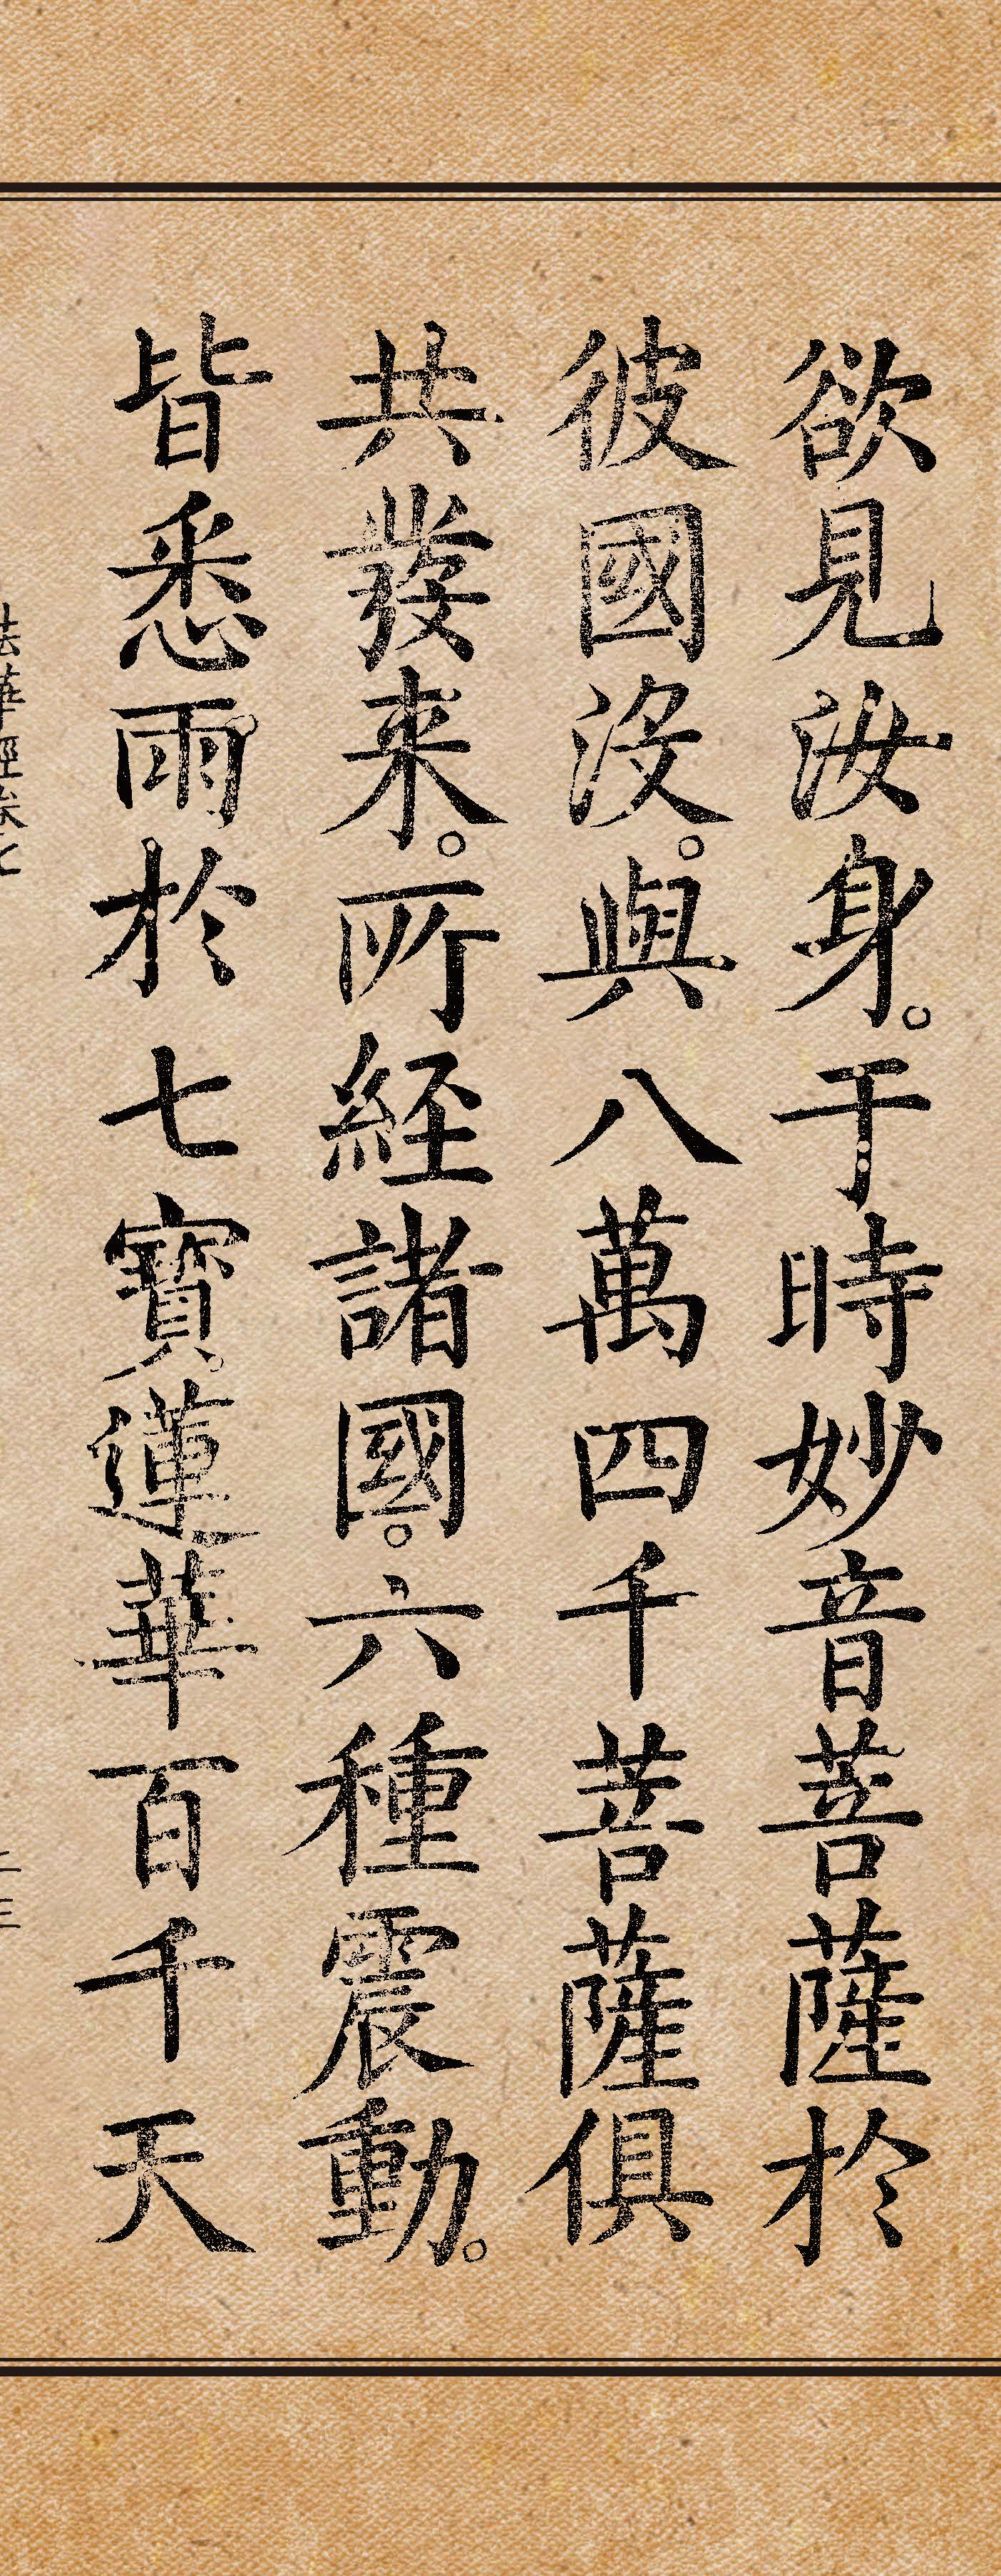 欲見汝身。于時妙音菩薩於
彼國沒。與八萬四千菩薩俱
共發来。所經諸國。六種震動。
皆悉雨於七寶蓮華百千天